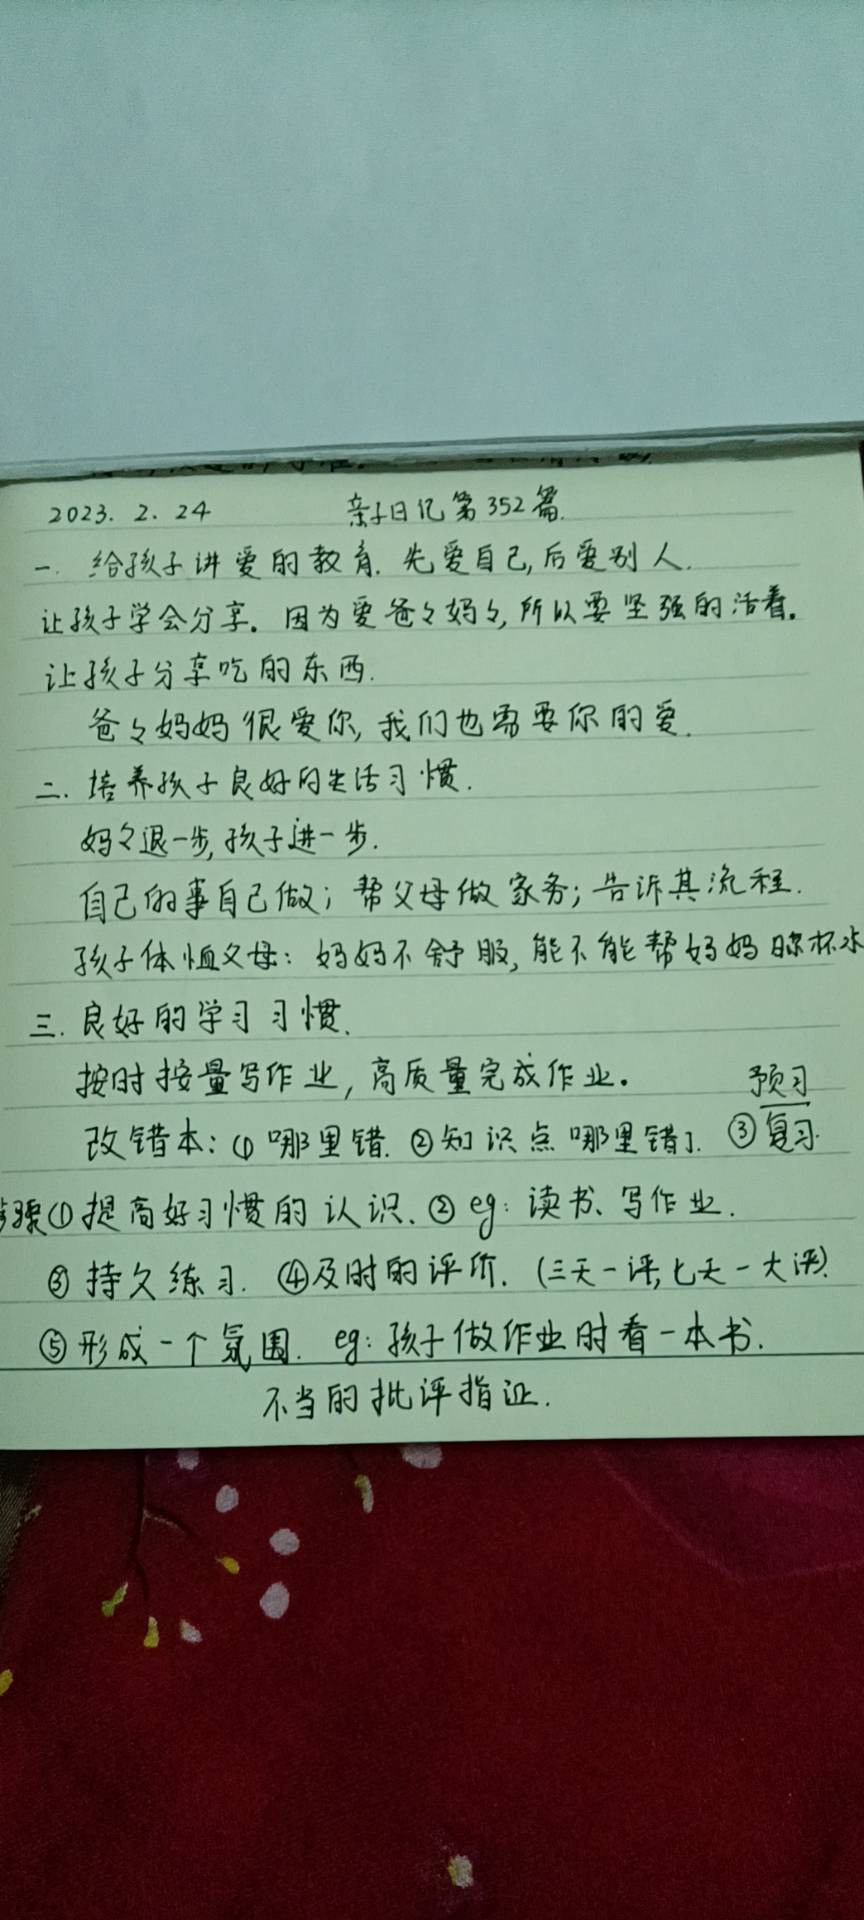 2023. 2. 24 亲子日记第352篇.
一. 给孩子讲爱的教育. 先爱自己, 后爱别人.
让孩子学会分享。因为爱爸々妈々, 所以要坚强的活着。
让孩子分享吃的东西.
爸々妈妈很爱你, 我们也需要你的爱.
二. 培养孩子良好的生活习惯.
妈々退一步, 孩子进一步.
自己的事自己做; 帮父母做家务; 告诉其流程.
孩子体恤父母: 妈妈不舒服, 能不能帮妈妈 杯水
三. 良好的学习习惯.
按时按量写作业, 高质量完成作业。 预习
改错本: ① 哪里错. ②知识点哪里错了. ③复习.
步骤①提高好习惯的认识. ② eg: 读书、写作业.
③ 持久练习. ④及时的评价. (三天一评, 七天一大评).
⑤ 形成一个氛围. eg: 孩子做作业时看一本书.
不当的批评指证.